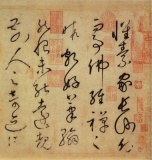 懷素家長沙幼
而事佛經禪之
暇頗好筆翰
然恨未能遠覩
前人之奇迹